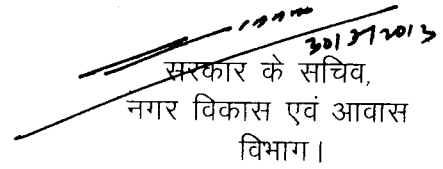 30/3/2013
सरकार के सचिव,
नगर विकास एवं आवास
विभाग।